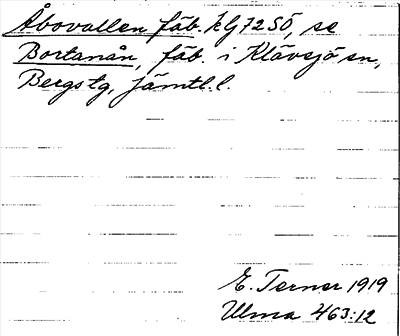 Åbovallen fäb. kG72SÖ, se
Bortanån, fäb. i Klövsjö sn,
Bergs tg, Jämtl. l.
E. Terner 1919
Ulma 463:12